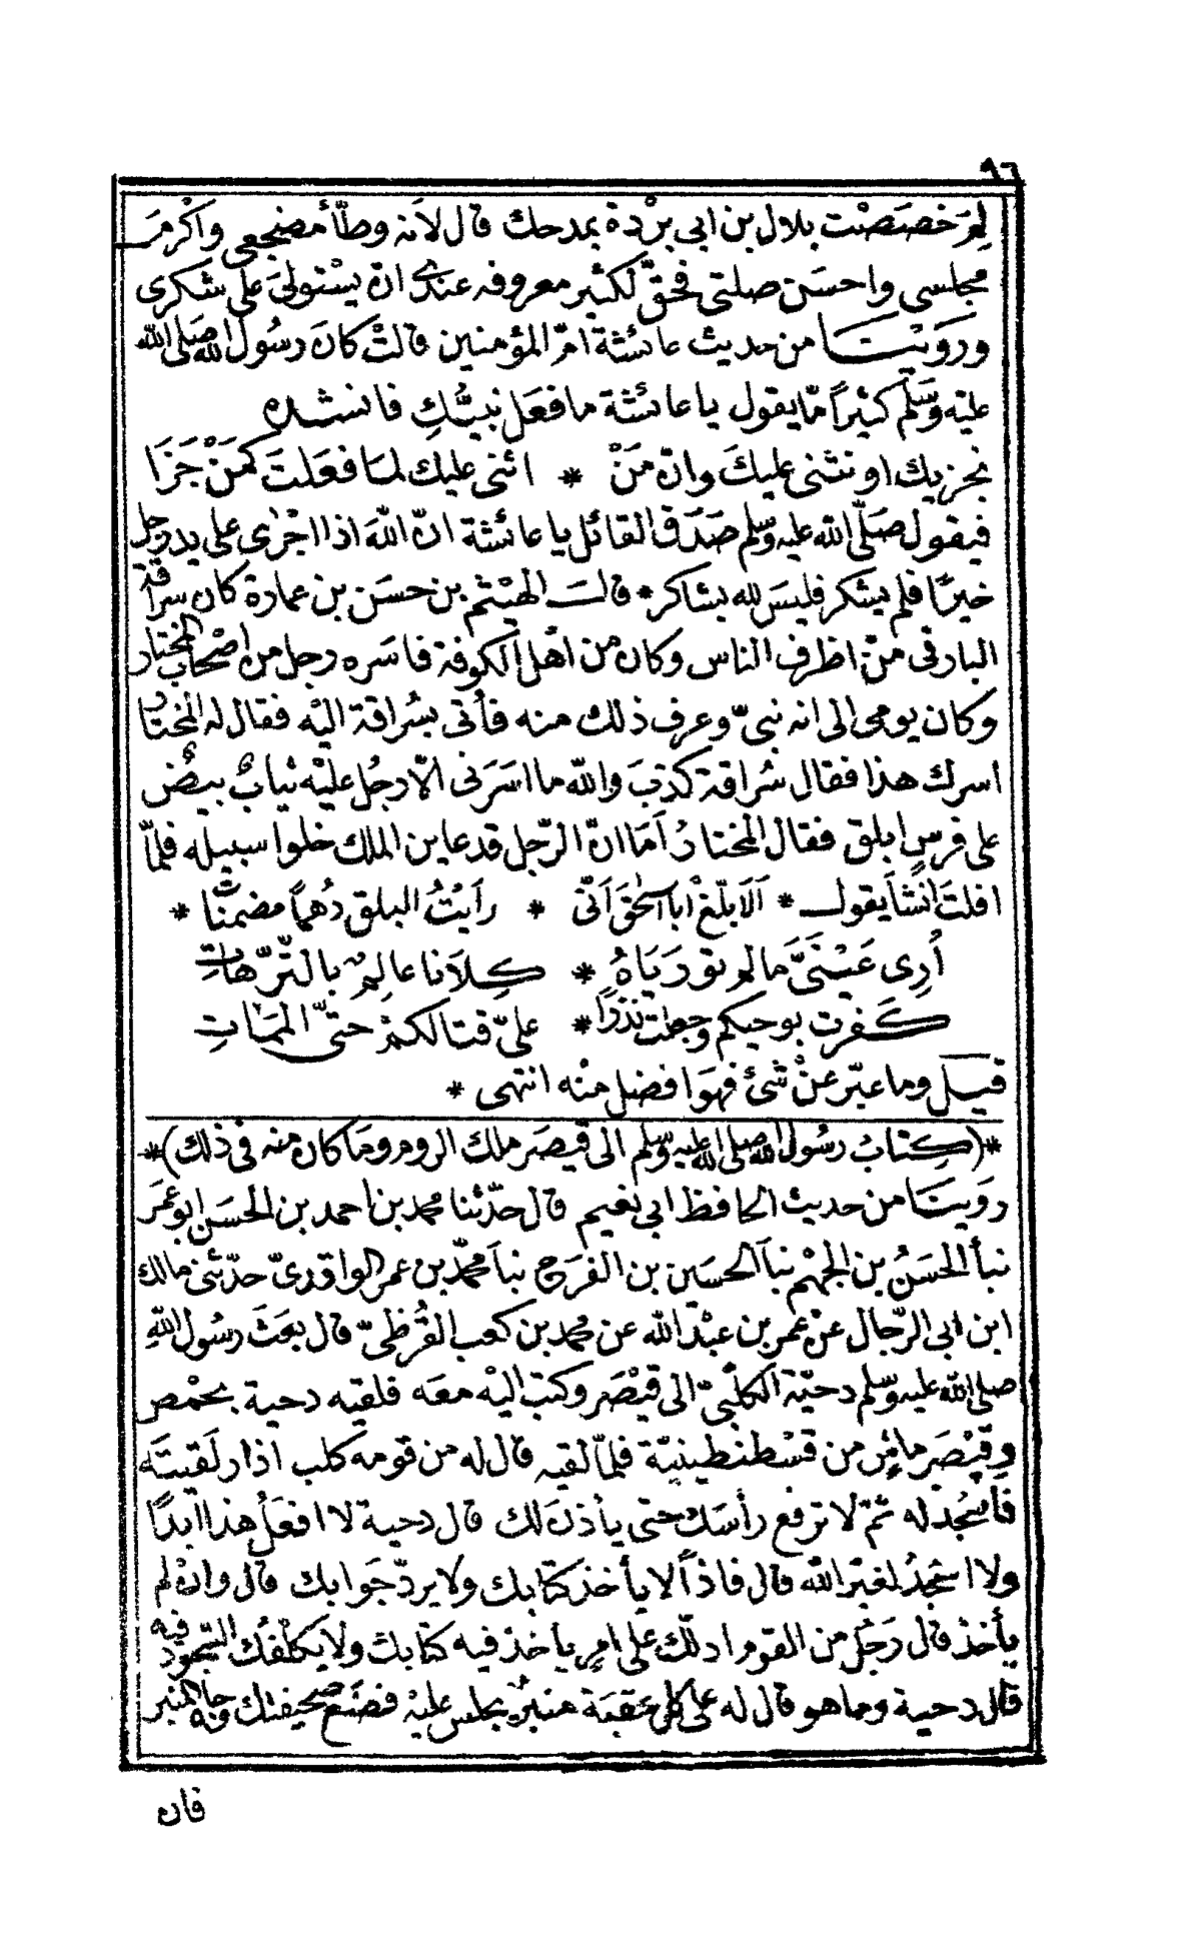 ٩٦
لِمَ خصَصْت بلال بن ابى برْدة بمدحك قال لأنه وطّأ مضجعى واكْرمَ
مجلسى واحسَن صلتى فحقّ لكثير معروفه عندى ان يسْتولىَ على شكرى
ورَوَيْنَـــا من حديث عائشة امّ المؤمنين قالتْ كانَ رسُول الله صلى الله
عليْه وَسَلّم كثيراً مّا يقول يا عائشة ما فعَل بَيتُكِ فانشده
نجزيك او نثنى عليكَ وانّ مَنْ * اثنى عليك لما فعَلتَ كمَنْ جَزَا
فيقول صَلّى الله عليه وسلم صَدَق القائل يا عائشة انّ اللهَ اذا اجْرٰى على يد رجل
خيرًا فلم يشكر فليسَ لله بشاكر * قالــت الهيْثم بن حسَن بن عمارة كان سراقة
البارقى منْ اظرف الناس وكان من اهْل الكوفة فاسَره رجل من اصْحاب المختار
وكان يومى الى انه نبىّ وعرف ذلك منه فأتى بسُراقة اليْه فقال له المختار
اسرك هذا فقال سُراقة كذبَ والله ما اسَرَنى الاّ رجُل عليْه ثيابٌ بيضٌ
على فرسٍ ابلق فقال المختارُ اَمَا انّ الرّجل قد عاين الملك خلوا سبيله فلمّا
افلتَ انشَأ يقولــ * اَلاَ بلّغْ ابا اسحٰقَ اَنّى * رأيْتُ البلق دُهماً مضمتاتٌ *
اُرِى عَيْنَىَّ ما لم تورَيَاهُ * كِلاَنا عالِمٌ بالتّرّهاتِ
كَفرت بوحيكم وجعلت نذرًا * علىّ قتالكمْ حتىّ المَمَاتِ
قيــل وما عبّر عنْ شئ فهوَ افضل منْه انتهى *
*(كِتابُ رسُول الله صلى الله عليه وسلم الى قيصَر ملك الروم وما كان منه فى ذلك)*
روَيتَا من حديث الحافظ ابى نعَيم قال حدّثنا محمد بن احمد بن الحسَن ابو عمَر
نبأ الحسَنُ بن الجهْم نبأ الحسَين بن الفرَج نبأ محمّد بن عمر الواقدىّ حدّثنى مالك
ابن ابى الرّجال عنْ عمَر بن عبْد الله عن محمد بن كعب القُرظىّ قال بعَثَ رسُول اللهِ
صلى الله عليه وسلم دحيّة الكلْبىّ الى قيْصَر وكتبَ اليْه معَه فلقيه دحية بحمْص
وقيْصَر ماشٍ من قسْطنطينيّة فلمّا لقيه قال له من قومه كلب اذا رلَقيتَه
فاسْجُد له ثم لا ترفع رأسَك حتى يأذن لك قال دحية لا افعَلُ هذا ابدًا
ولا اسْجدُ لغيْر الله قال فاذاً لا يأخذ كتابك ولا يردّ جَوابك قال وان لم
يأخذ قال رَجُل من القوم ادلّك على امرٍ يأخذ فيه كتابك ولا يكلّفك السّجود فيه
قال دحية وما هو قال له على كل عقبَة منبرٌ يجلس عليْه فضَع صحيفتك وجاه المنبر
فان